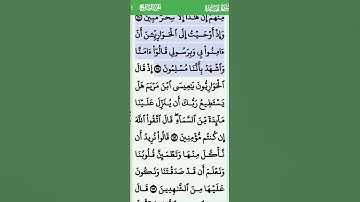 مِنْهُمْ إِنْ هَٰذَا إِلَّا سِحْرٌ مُّبِينٌ
وَإِذْ أَوْحَيْتُ إِلَى ٱلْحَوَارِيِّـۧنَ أَنْ
ءَامِنُوا۟ بِى وَبِرَسُولِى قَالُوٓا۟ ءَامَنَّا
وَٱشْهَدْ بِأَنَّنَا مُسْلِمُونَ ۝ إِذْ قَالَ
ٱلْحَوَارِيُّونَ يَٰعِيسَى ٱبْنَ مَرْيَمَ هَلْ
يَسْتَطِيعُ رَبُّكَ أَن يُنَزِّلَ عَلَيْنَا
مَآئِدَةً مِّنَ ٱلسَّمَآءِ ۖ قَالَ ٱتَّقُوا۟ ٱللَّهَ
إِن كُنتُم مُّؤْمِنِينَ ۝ قَالُوا۟ نُرِيدُ أَن
نَّأْكُلَ مِنْهَا وَتَطْمَئِنَّ قُلُوبُنَا
وَنَعْلَمَ أَن قَدْ صَدَقْتَنَا وَنَكُونَ
عَلَيْهَا مِنَ ٱلشَّٰهِدِينَ ۝ قَالَ